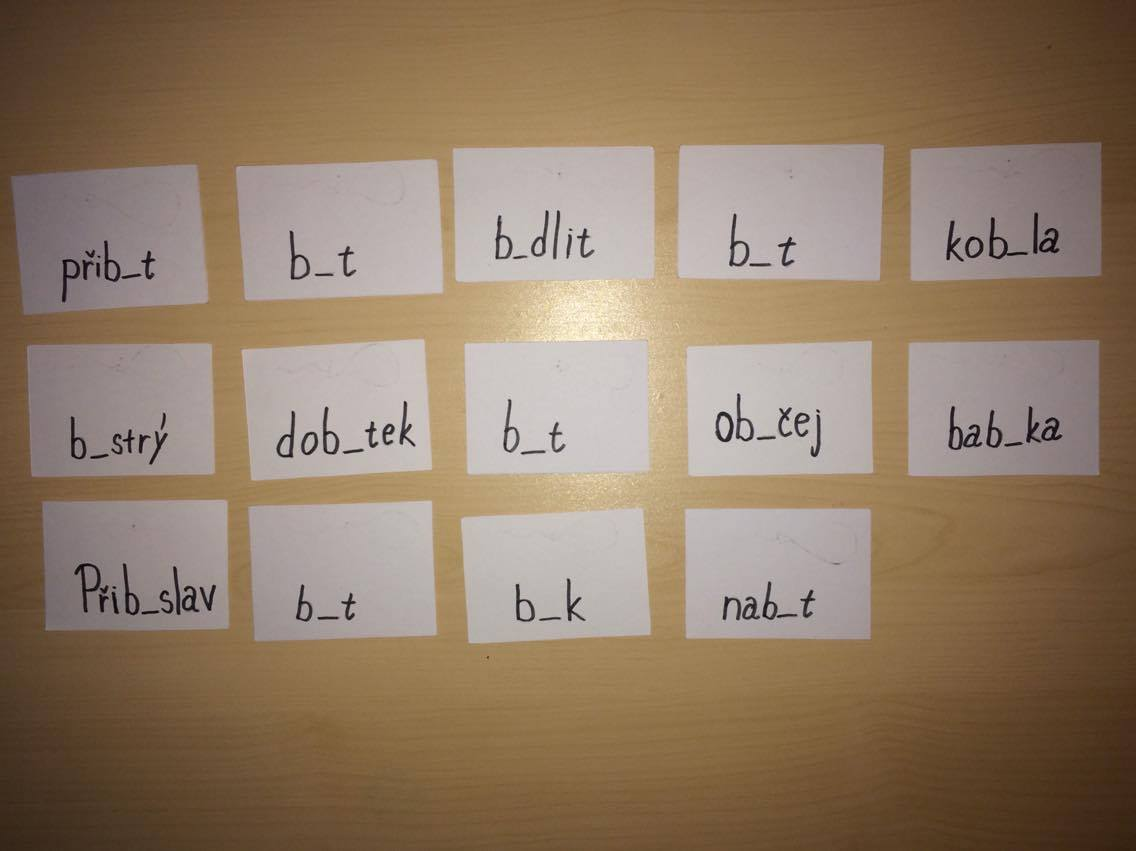 přib_t
b_t
b_dlit
b_t
kob_la
b_strý
dob_tek
b_t
ob_čej
bab_ka
Přib_slav
b_t
b_k
nab_t